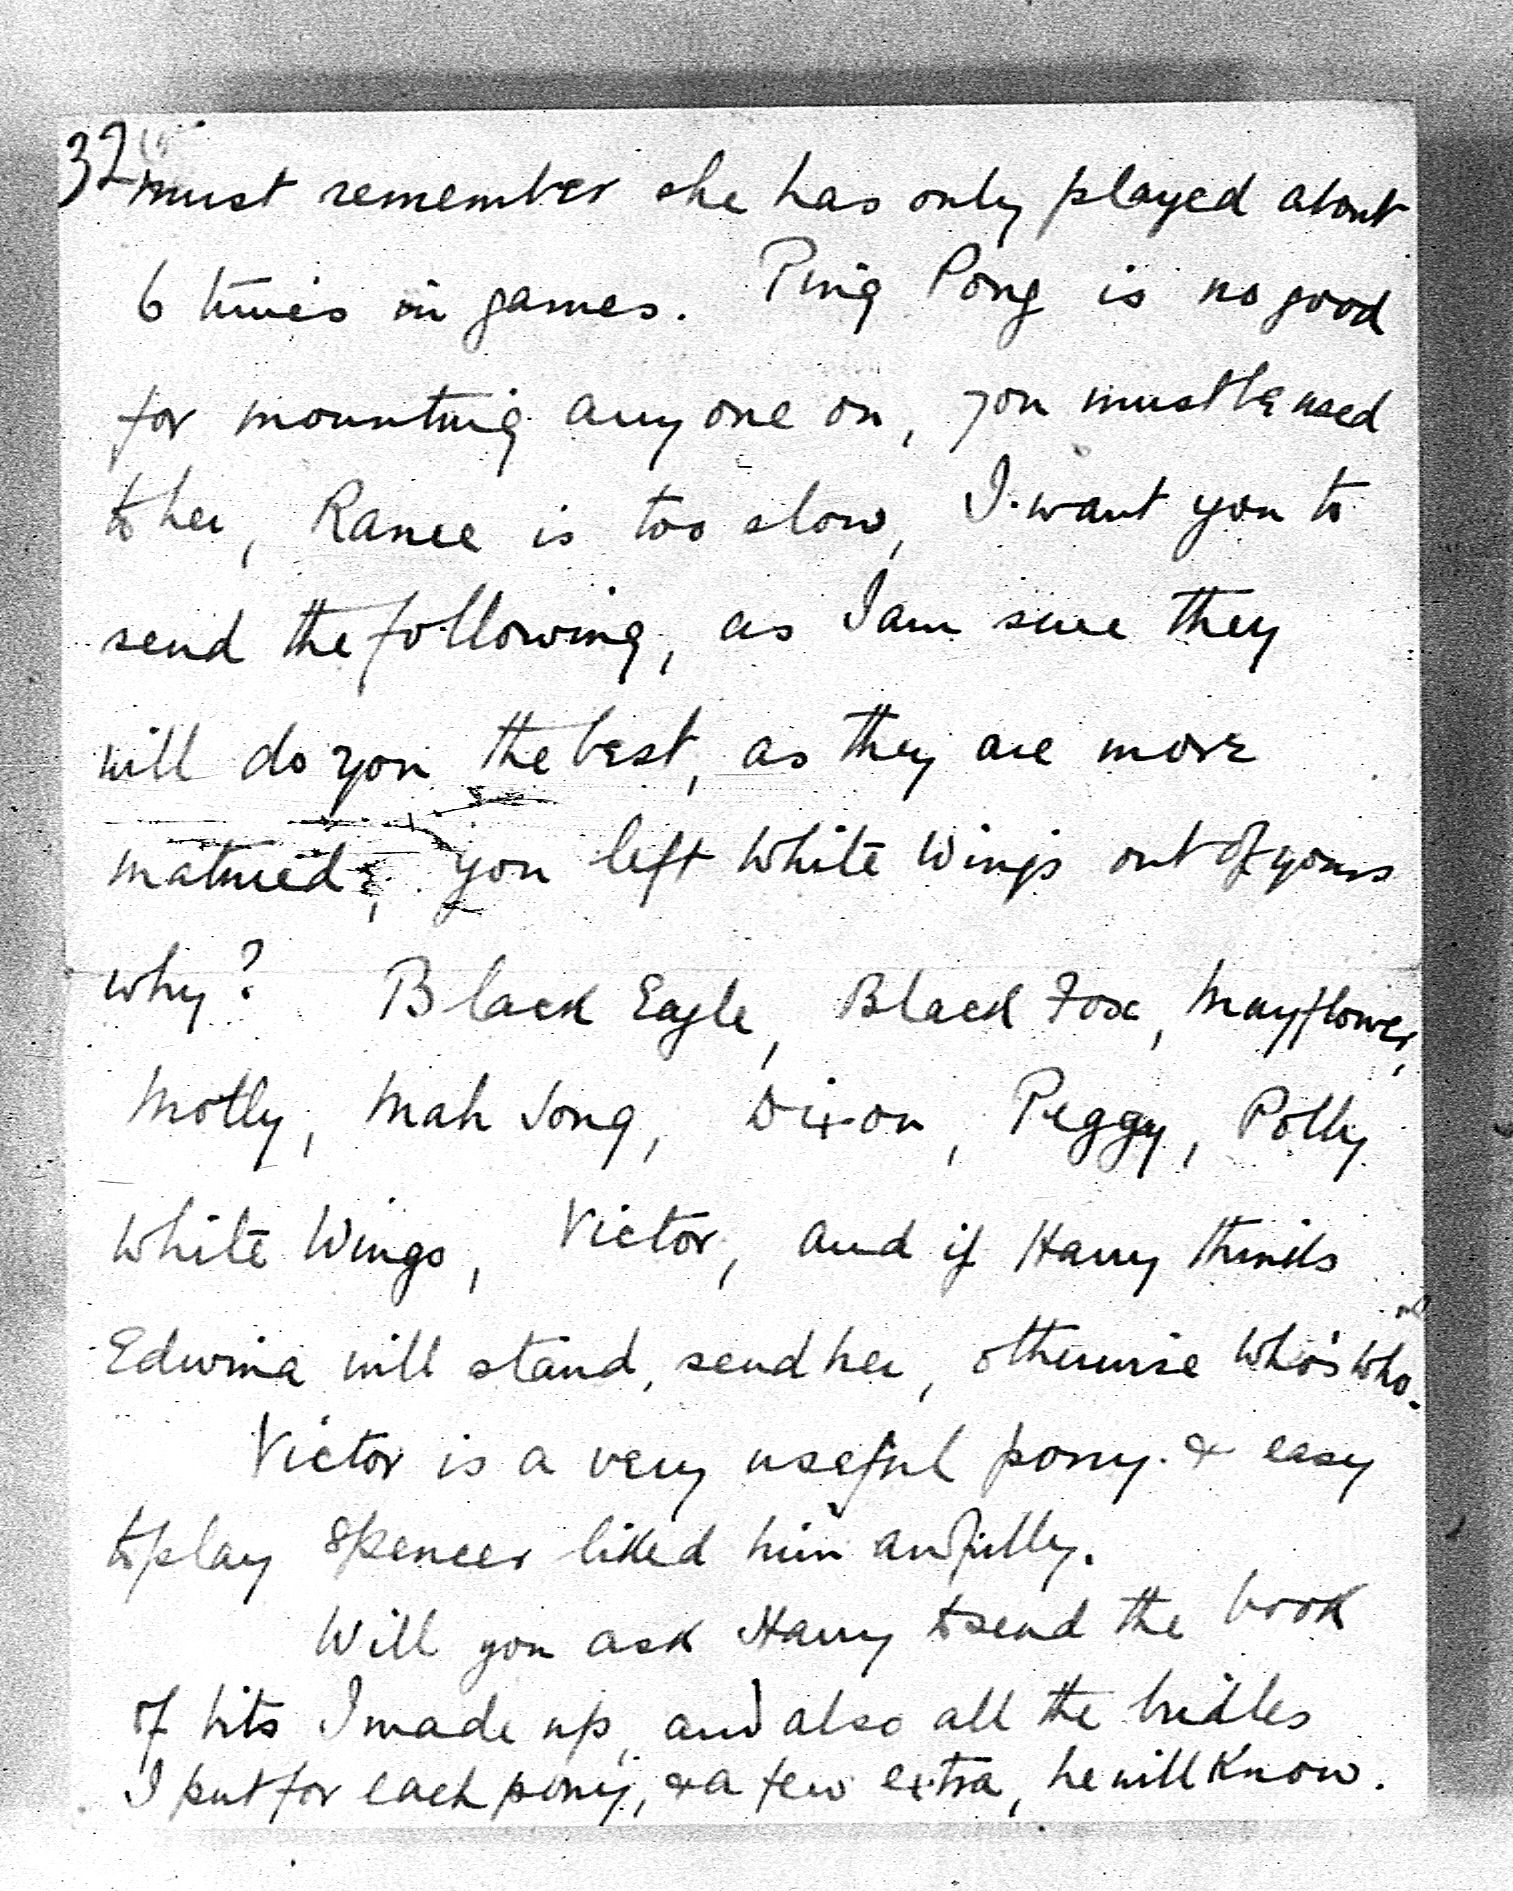 32 must remember she has only played about
6 times in games. Ping Pong is no good
for mounting anyone on, you must be used
to her, Ranee is too slow, I want you to
send the following, as I am sure they
will do you the best, as they are more
matured, you left White Wings out of yours
why? Black Eagle, Black Fox, Mayflower,
Motly, Mah Jong, Dixon, Peggy, Polly
White Wings, Victor, and if Harry thinks
Edwina will stand, send her, otherwise Who's Who.
Victor is a very useful pony. & easy
to play Spencer liked him awfully.
Will you ask Harry to send the book
of bits I made up, and also all the bridles
I put for each pony, & a few extra, he will know.